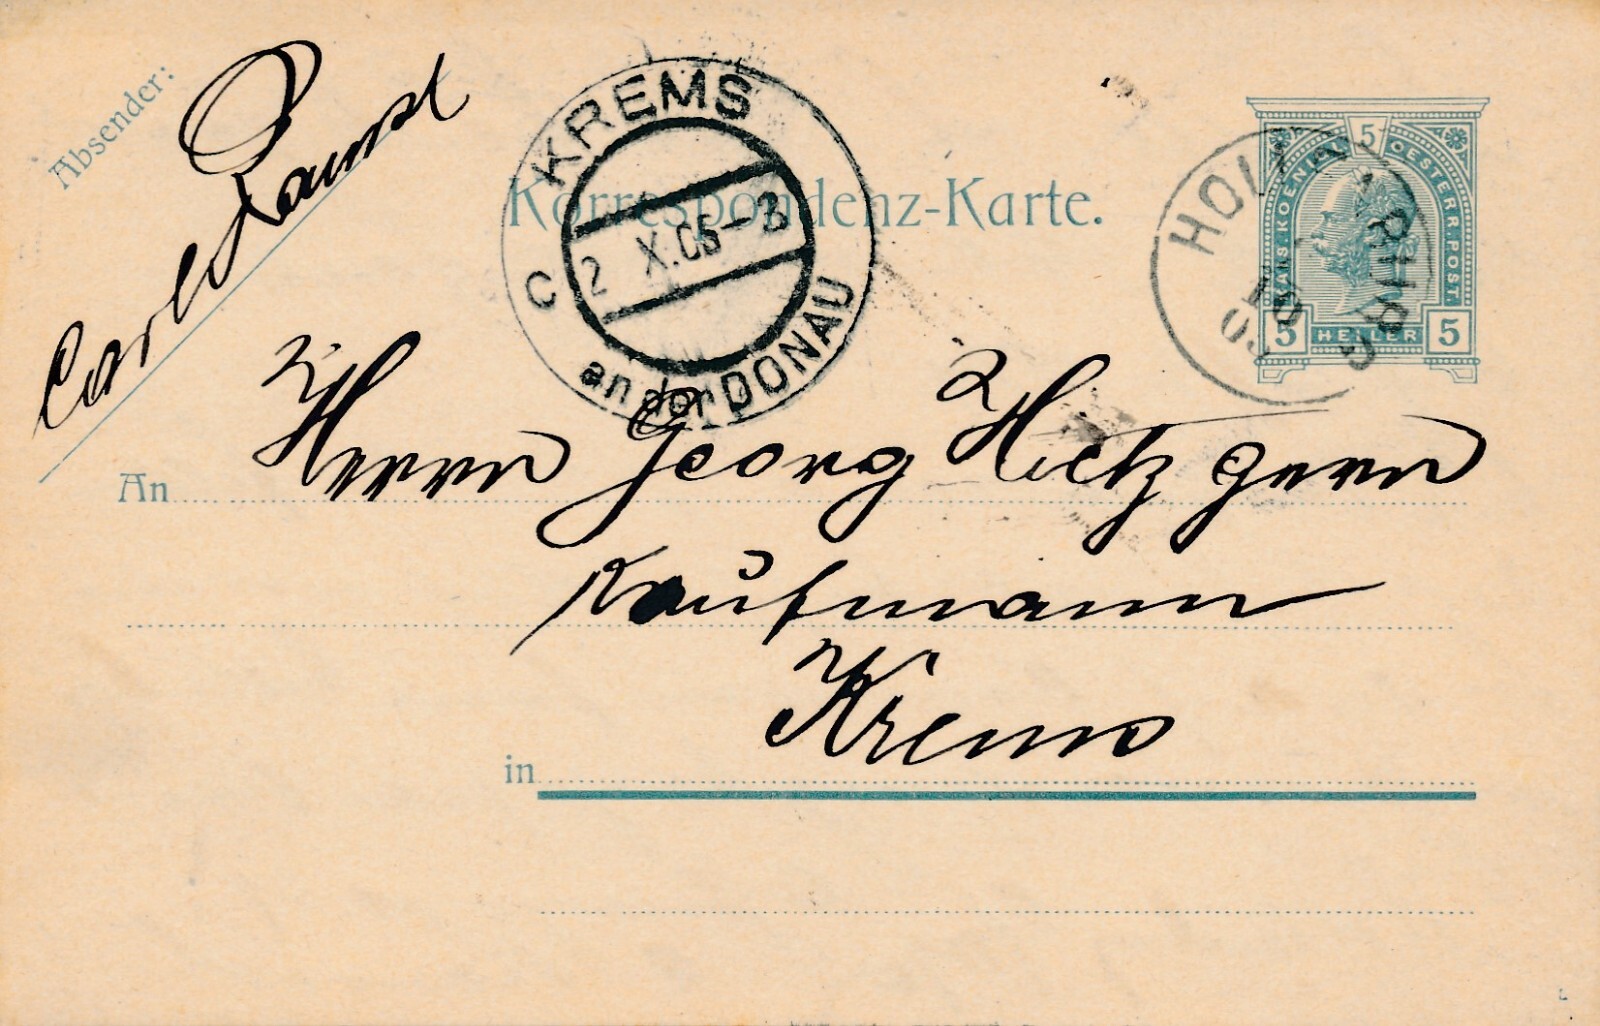 Absender:
Carl
KREMS
an der DONAU
C
2 X.05-3
Korrespondenz-Karte.
5
KAIS. KOENIGL. OESTERR. POST.
5 HELLER 5
2
10
05
An Herrn Georg
Kaufmann
in Krems